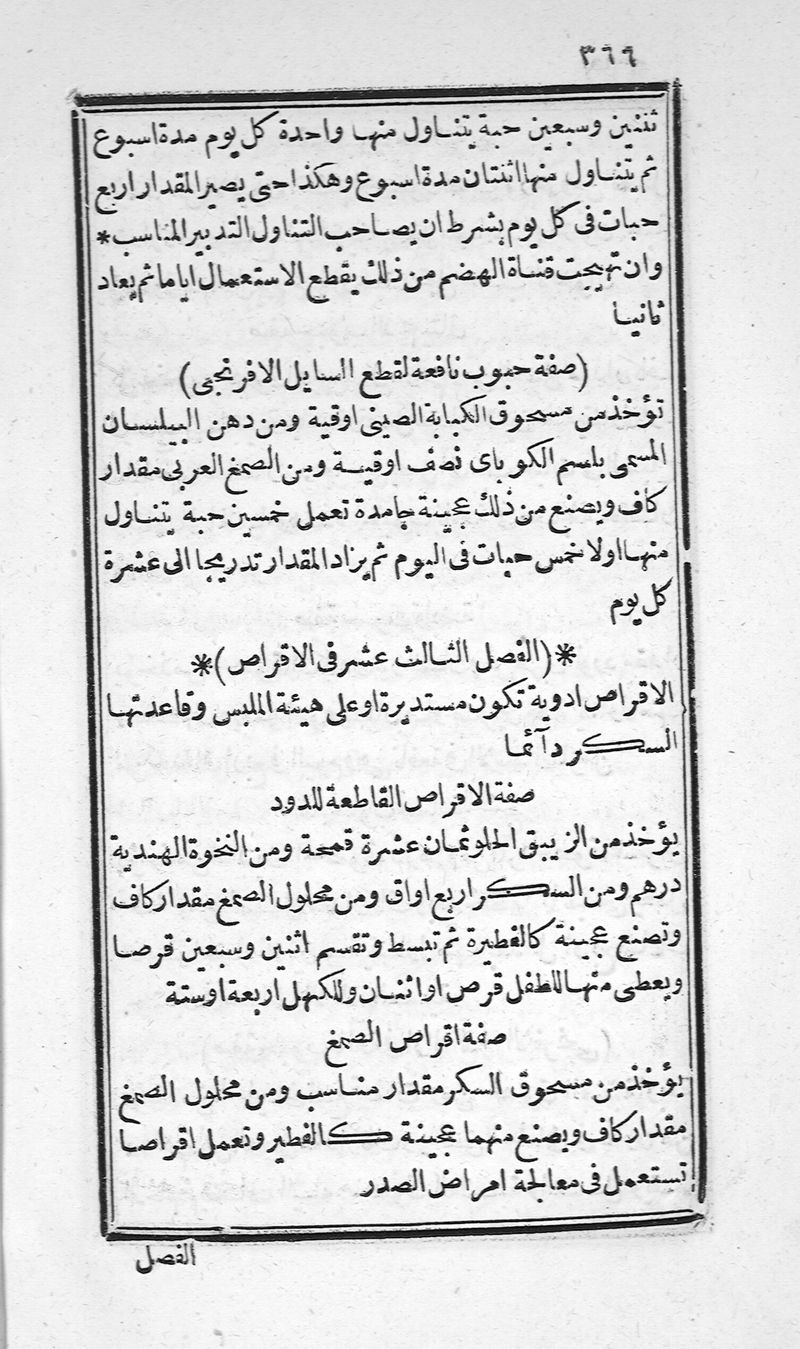 ٣٦٦
ثنتين وسبعين حبة يتناول منها واحدة كل يوم مدة اسبوع
ثم يتناول منها اثنتان مدة اسبوع وهكذا حتى يصير المقدار اربع
حبات فى كل يوم بشرط ان يصاحب التناول التدبير المناسب *
وان تهيجت قناة الهضم من ذلك يقطع الاستعمال اياما ثم يعاد
ثانيا
(صفة حبوب نافعة لقطع السايل الافرنجى)
تؤخذ من مسحوق الكبابة الصينى اوقية ومن دهن البيلسان
المسمى باسم الكوباى نصف اوقية ومن الصمغ العربى مقدار
كاف ويصنع من ذلك عجينة جامدة تعمل خمسين حبة يتناول
منها اولا خمس حبات فى اليوم ثم يزاد المقدار تدريجا الى عشرة
كل يوم
*(الفصل الثالث عشر فى الاقراص)*
الاقراص ادوية تكون مستديرة او على هيئة الملبس وقاعدتها
السكر دآئما
صفة الاقراص القاطعة للدود
يؤخذ من الزيبق الحلو ثمان عشرة قمحة ومن النخوة الهندية
درهم ومن السكر اربع اواق ومن محلول الصمغ مقدار كاف
وتصنع عجينة كالفطيرة ثم تبسط وتقسم اثنين وسبعين قرصا
ويعطى منها للطفل قرص او اثنان وللكهل اربعة او ستة
صفة اقراص الصمغ
يؤخذ من مسحوق السكر مقدار مناسب ومن محلول الصمغ
مقدار كاف ويصنع منهما عجينة كالفطير وتعمل اقراصا
تستعمل فى معالجة امراض الصدر
الفصل